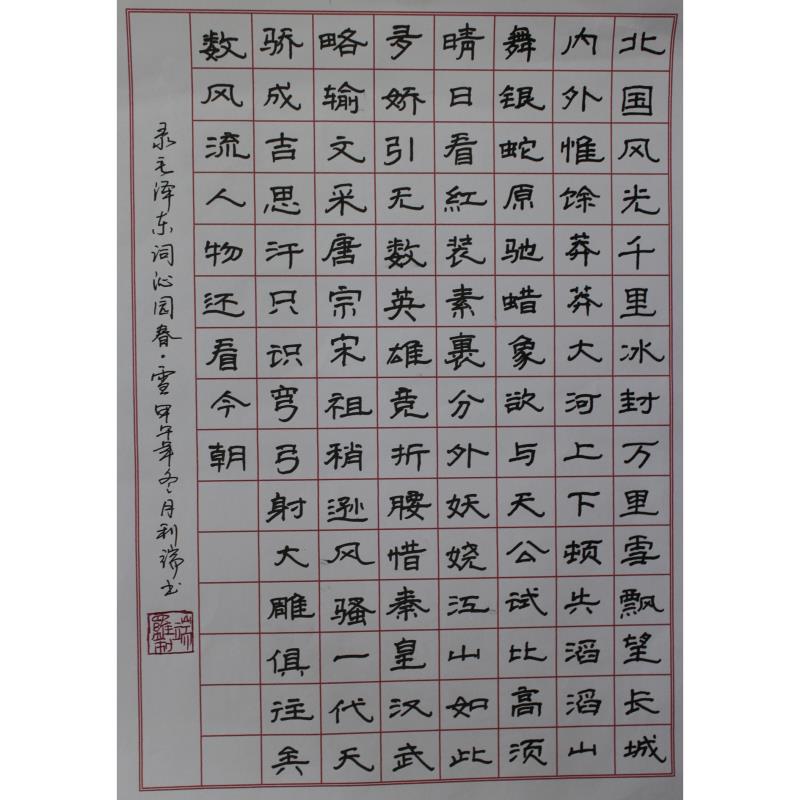 北国风光千里冰封万里雪飘望长城
内外惟馀莽莽大河上下顿失滔滔山
舞银蛇原驰蜡象欲与天公试比高须
晴日看紅装素裹分外妖娆江山如此
多娇引无数英雄竞折腰惜秦皇汉武
略输文采唐宗宋祖稍逊风骚一代天
骄成吉思汗只识穹弓射大雕俱往矣
数风流人物还看今朝
录毛泽东词沁园春·雪甲午年冬月利瑞书
羅利瑞